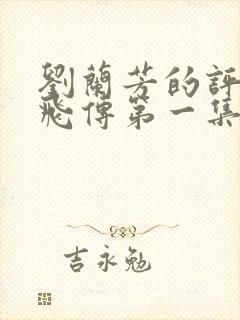 劉蘭芳的評
飛傳第一集
吉永勉